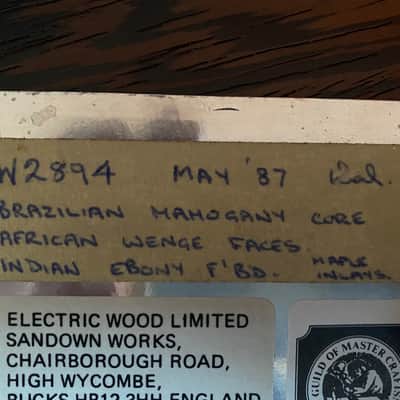 W2894 MAY '87
BRAZILIAN MAHOGANY CORE
AFRICAN WENGE FACES.
INDIAN EBONY F'BD. MAPLE INLAYS.
ELECTRIC WOOD LIMITED
SANDOWN WORKS,
CHAIRBOROUGH ROAD,
HIGH WYCOMBE,
BUCKS HP12 3HH ENGLAND
GUILD OF MASTER CRAFTS